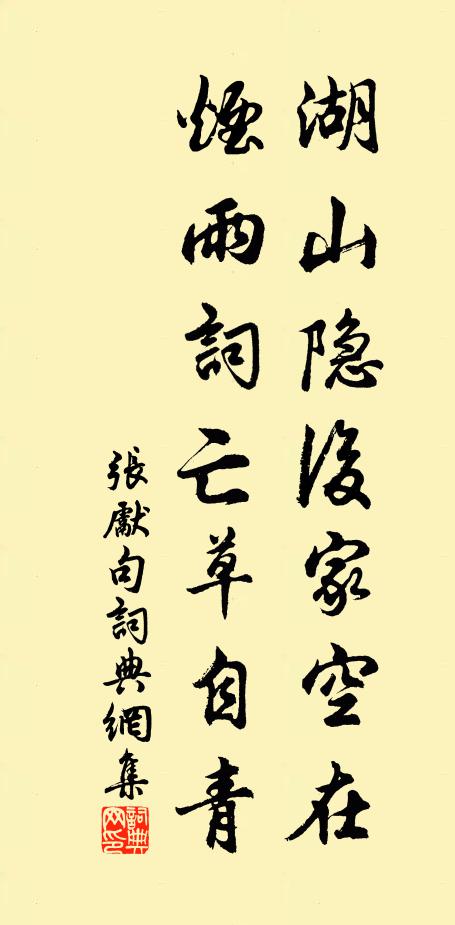 湖山隐後家空在
煙雨詞亡草自青
張獻句詞典網集
詞典网印